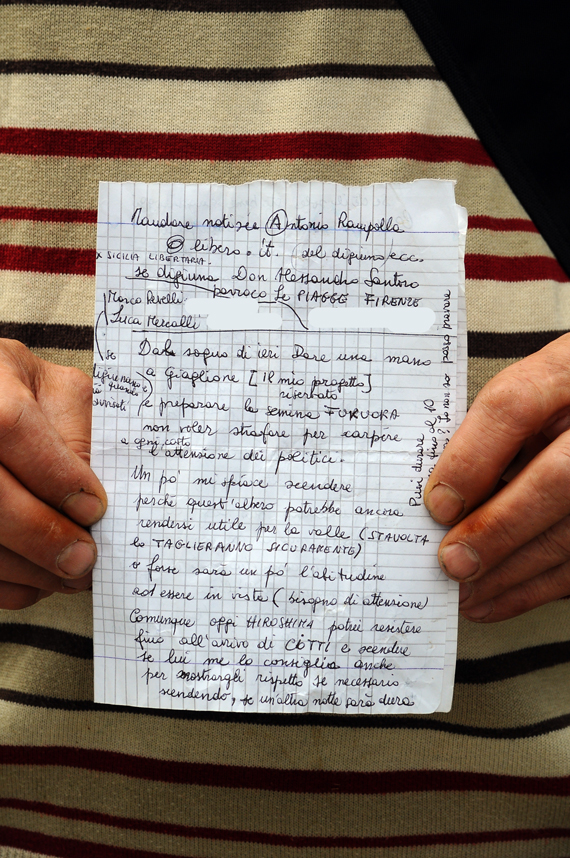 Mandare notizie Antonio Rampolla
@ libero.it. (del digiuno ecc.
x SICILIA LIBERTARIA.
se digiuna Don Alessandro Santoro
parroco Le PIAGGE FIRENZE
Marco Revelli
Luca Mercalli
se
digiunano
Dal sogno di ieri Dare una mano
a Giaglione [Il mio progetto]
riservato
e preparare la semina FUKUOKA
non voler strafare per carpire
a ogni costo
l'attenzione dei politici.
Un po' mi spiace scendere
perché quest'albero potrebbe ancora
rendersi utile per la valle (STAVOLTA
lo TAGLIERANNO SICURAMENTE)
o forse sarà un po' l'abitudine
ad essere in vista (bisogno di attenzione)
Comunque oggi HIROSHIMA potrei resistere
fino all'arrivo di COTTI e scendere
se lui me lo consiglia anche
per mostrargli rispetto se necessario
scendendo, se un'altra notte sarà dura
Può durare al 10
fino? Io non so posso provare